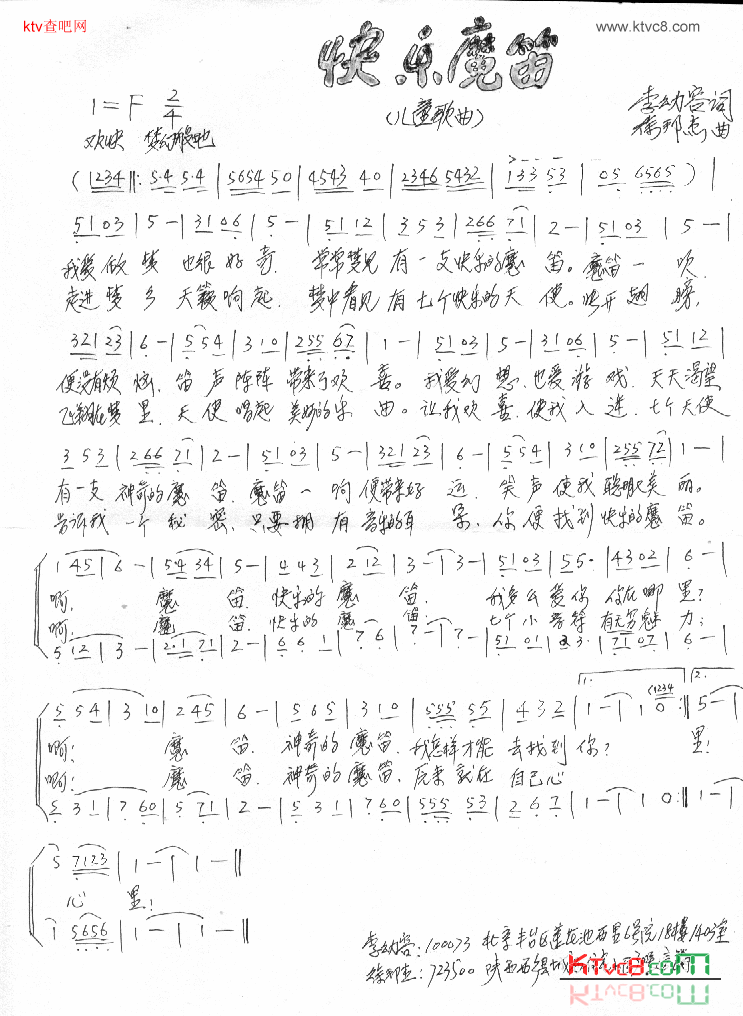 ktv查吧网
www.ktvc8.com
快乐魔笛
(儿童歌曲)
1=F 2/4
李幼容词
徐邦杰曲
欢快 梦幻般地
(1234‖: 5·4 5·4 | 5654 50 | 4543 40 | 2346 5432 | 133 53 | 05 6565 ) |
5103 | 5 - | 3106 | 5 - | 5112 | 353 | 266 71 | 2 - | 5103 | 5 - |
我爱做梦 也很好奇. 常常梦见 有一支快乐的魔笛。魔笛一吹
走进梦乡 天籁响起. 梦中看见 有七个快乐的天使。快开翅膀,
321 23 | 6 - | 554 | 310 | 255 67 | 1 - | 5103 | 5 - | 3106 | 5 - | 5112 |
便没有烦恼. 笛声阵阵 带来了欢喜。我爱幻想. 也爱游戏. 天天渴望
飞翔在梦里. 天使唱起 美妙的乐曲。让我欢喜. 使我入迷. 七个天使
353 | 266 71 | 2 - | 5103 | 5 - | 321 23 | 6 - | 554 | 310 | 255 72 | 1 - |
有一支 神奇的魔笛. 魔笛一响 便带来好运. 笑声使我聪明美丽。
告诉我 一个秘密. 只要拥有 音乐的耳朵. 你便找到快乐的魔笛。
1 45 | 6 - | 54 34 | 5 - | 443 | 2 12 | 3 - | 3 - | 5103 | 55· | 4302 | 6 - |
啊, 魔笛. 快乐的魔笛. 我多么爱你 你在哪里?
啊, 魔笛. 快乐的魔笛. 七个小音符 有无穷魅力;
5 12 | 3 - | 2·1 71 | 2 - | 661 | 7 6 | 7 - | 7 - | 5101 | 23· | 7107 | 6 - |
5 54 | 3 10 | 2 45 | 6 - | 565 | 310 | 555 55 | 432 | 1 - | 1 0 (1234 :‖ 5 - |
1. 2.
啊; 魔笛. 神奇的魔笛. 我怎样才能 去找到你? 里!
啊; 魔笛. 神奇的魔笛. 原来就在 自己心
5 31 | 7 60 | 5 71 | 2 - | 531 | 760 | 555 53 | 267 | 1 - | 1 0 :‖ 1 - |
5 7123 | 1 - | 1 - ‖
心里!
1 5656 | 1 - | 1 - ‖
李幼容: 100073 北京丰台区莲花池西里6号院18楼1403室
徐邦杰: 723500 陕西西
Ktvc8.com